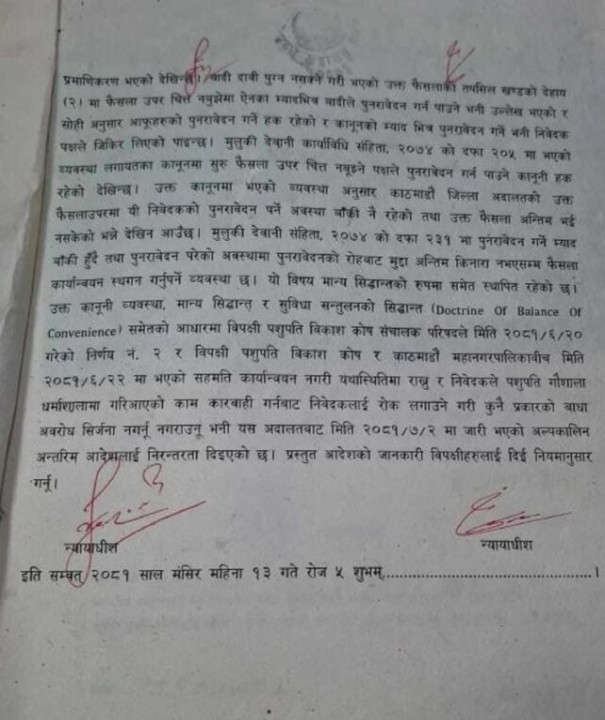 प्रमाणिकरण भएको देखिन्छ। वादी दावी पुग्न नसक्ने गरी भएको उक्त फैसलाको तपसिल खण्डको देहाय
(२) मा फैसला उपर चित्त नबुझेमा ऐनका म्यादभित्र वादीले पुनरावेदन गर्न पाउने भनी उल्लेख भएको र
सोही अनुसार आफूहरुको पुनरावेदन गर्ने हक रहेको र कानूनको म्याद भित्र पुनरावेदन गर्ने भनी निवेदक
पक्षले जिकिर लिएको पाइन्छ। मुलुकी देवानी कार्यविधि संहिता, २०७४ को दफा २०५ मा भएको
व्यवस्था लगायतका कानूनमा सुरु फैसला उपर चित्त नबुझ्ने पक्षले पुनरावेदन गर्न पाउने कानूनी हक
रहेको देखिन्छ। उक्त कानूनमा भएको व्यवस्था अनुसार काठमाडौं जिल्ला अदालतको उक्त
फैसलाउपरमा यी निवेदकको पुनरावेदन पर्ने अवस्था बाँकी नै रहेको तथा उक्त फैसला अन्तिम भई
नसकेको भन्ने देखिन आउँछ। मुलुकी देवानी संहिता, २०७४ को दफा २३१ मा पुनरावेदन गर्ने म्याद
बाँकी हुँदै तथा पुनरावेदन परेको अवस्थामा पुनरावेदनको रोहबाट मुद्दा अन्तिम किनारा नभएसम्म फैसला
कार्यान्वयन स्थगन गर्नुपर्ने व्यवस्था छ। यो विषय मान्य सिद्धान्तको रुपमा समेत स्थापित रहेको छ।
उक्त कानूनी व्यवस्था, मान्य सिद्धान्त र सुविधा सन्तुलनको सिद्धान्त (Doctrine Of Balance Of
Convenience) समेतको आधारमा विपक्षी पशुपति विकाश कोष संचालक परिषदले मिति २०८१/६/२०
गरेको निर्णय नं. २ र विपक्षी पशुपति विकाश कोष र काठमाडौं महानगरपालिकावीच मिति
२०८१/६/२२ मा भएको सहमति कार्यान्वयन नगरी यथास्थितिमा राख्नु र निवेदकले पशुपति गौशाला
धर्माशालामा गरिआएको काम कारवाही गर्नबाट निवेदकलाई रोक लगाउने गरी कुनै प्रकारको बाधा
अवरोध सिर्जना नगर्नू नगराउनू भनी यस अदालतबाट मिति २०८१/७/२ मा जारी भएको अल्पकालिन
अन्तरिम आदेशलाई निरन्तरता दिइएको छ। प्रस्तुत आदेशको जानकारी विपक्षीहरुलाई दिई नियमानुसार
गर्नू।
न्यायाधीश न्यायाधीश
इति सम्वत् २०८१ साल मंसिर महिना १३ गते रोज ५ शुभम्..............................................।